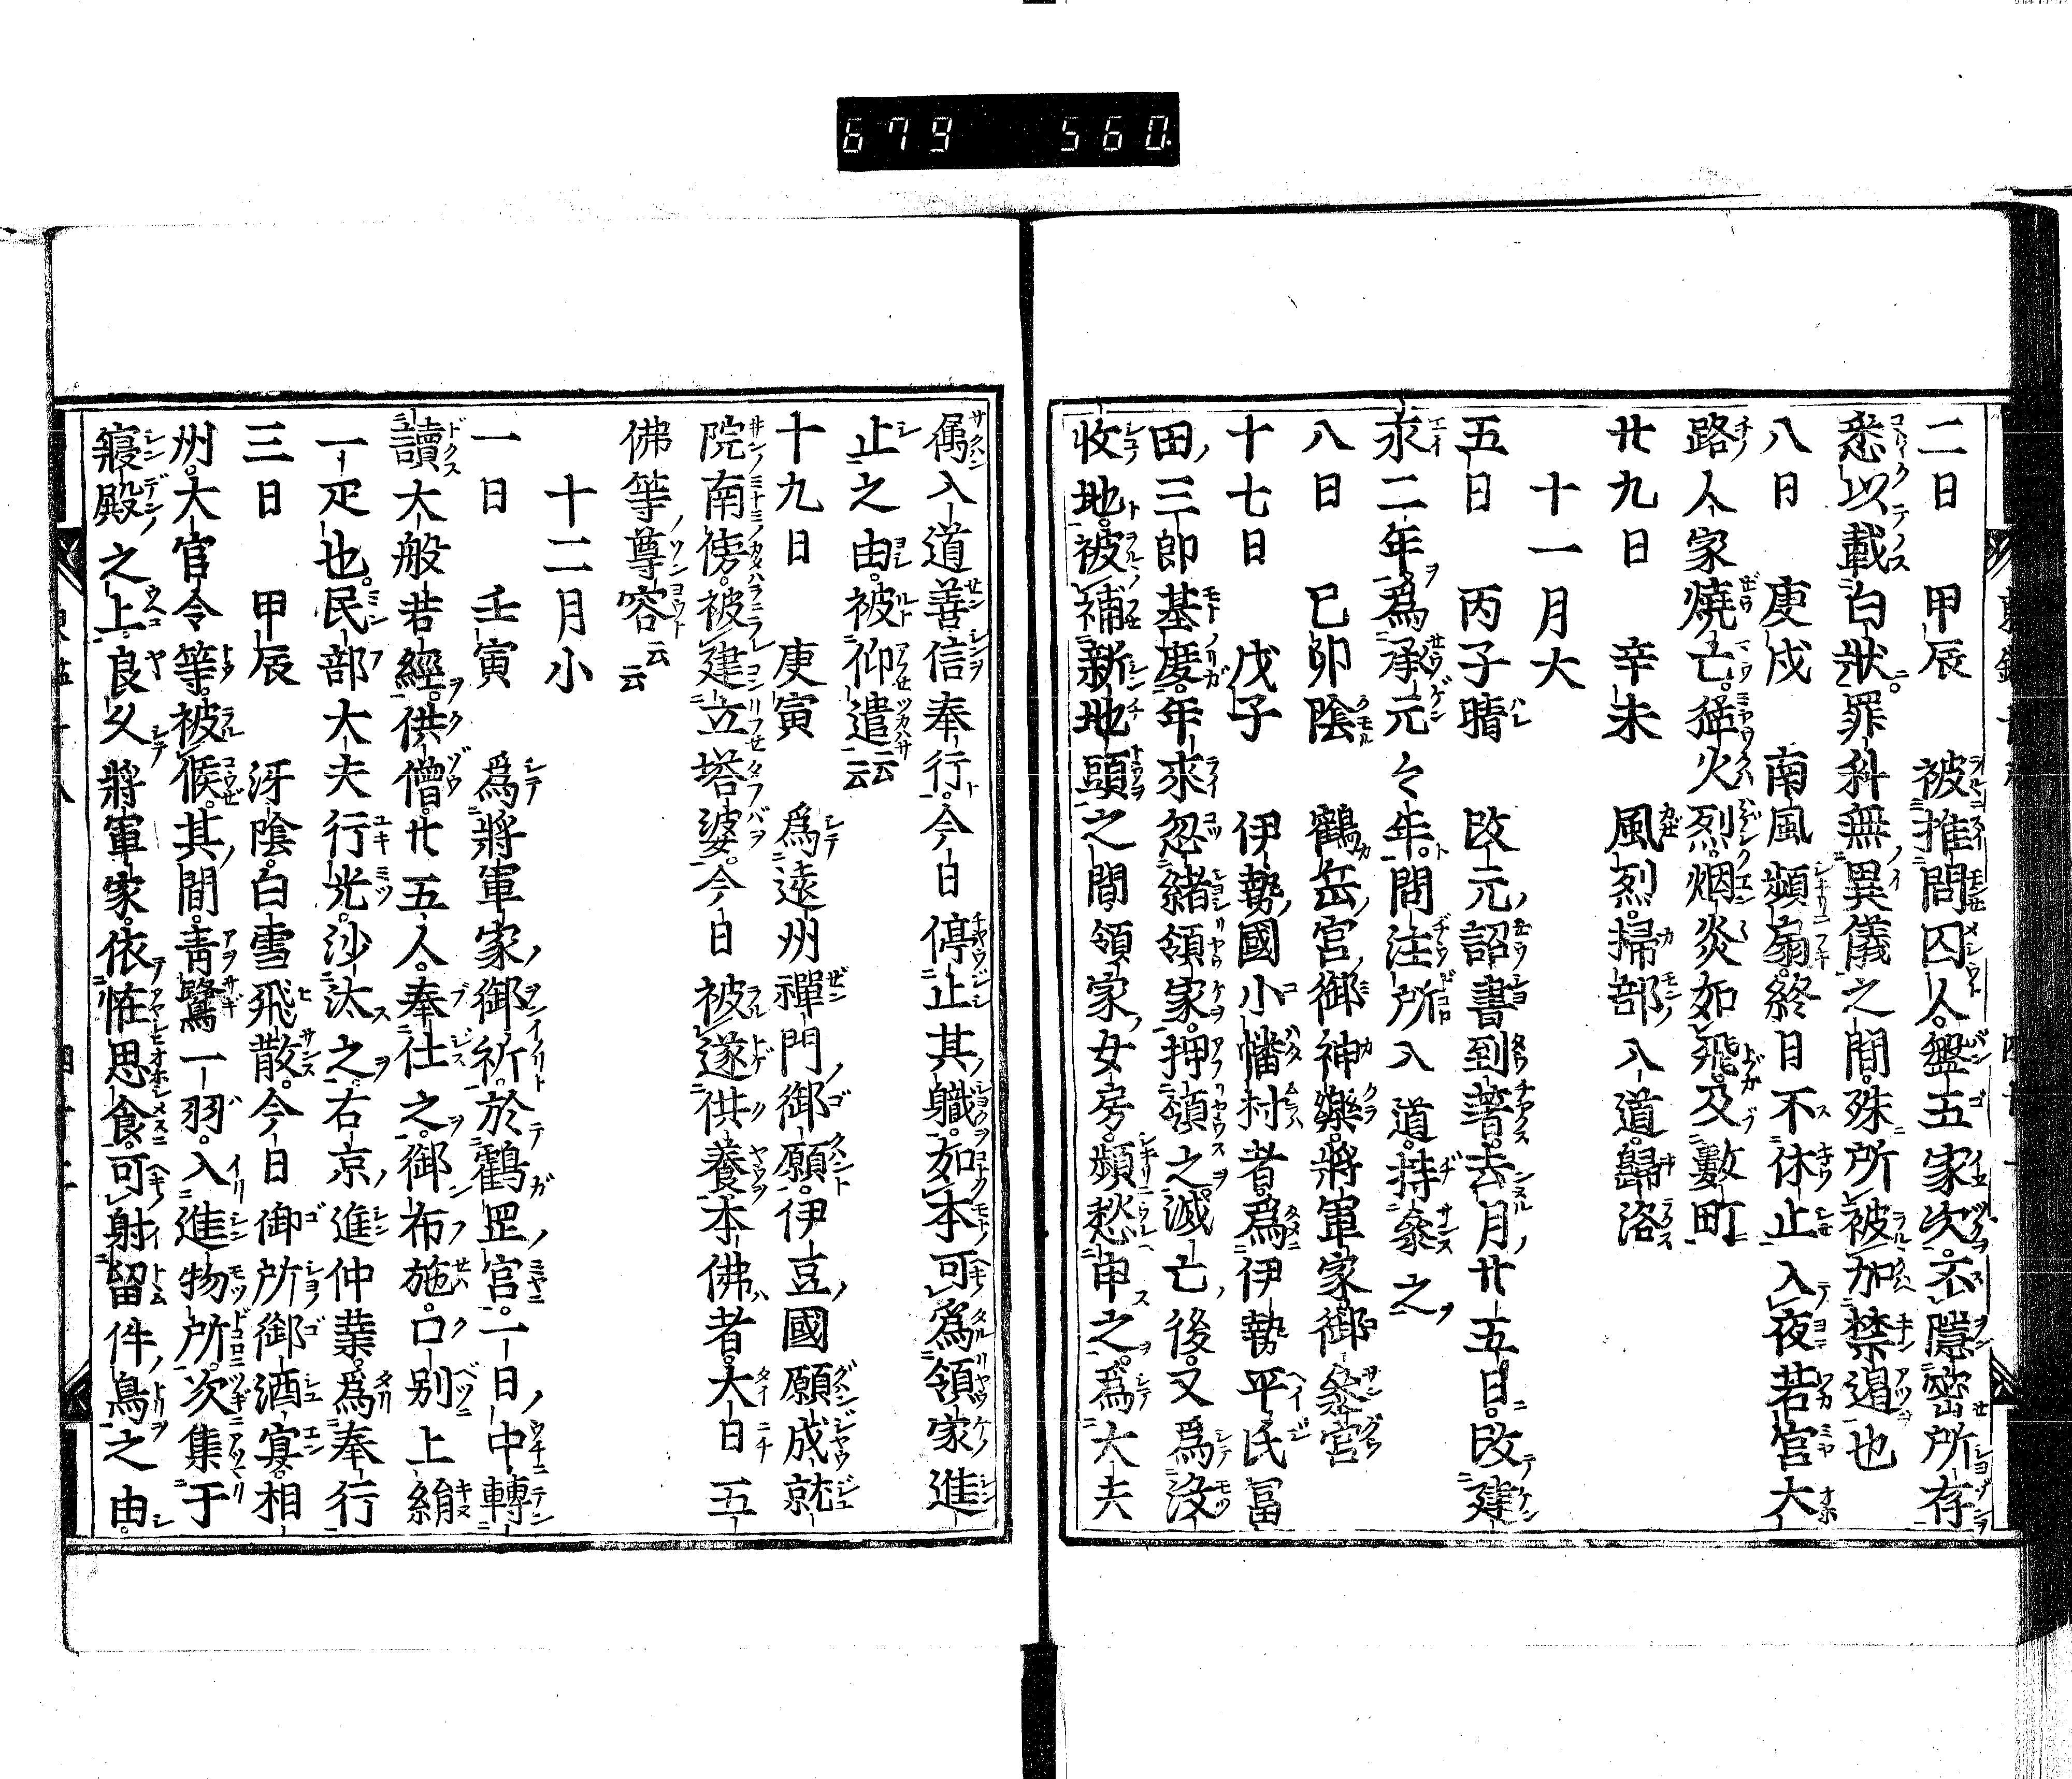 679 560.
二日 甲辰 被推問囚人。盤五家次。不隱密所存
悉以載白狀。罪科無異儀之間。殊所被加禁遏也
八日 庚戌 南風頻扇。終日不休止。入夜若宮大
路人家燒亡。猛火烈。烟炎如飛。及數町
廿九日 辛未 風烈。掃部入道。歸洛
十一月大
五日 丙子晴 改元詔書到著。去月廿五日。改建
永二年。爲承元々年。問注所入道。持參之
八日 己卯陰 鶴岳宮御神樂。將軍家御參宮
十七日 戊子 伊勢國小幡村者。爲伊勢平氏冨
田三郎基度。年來忽緒領家。押領之。滅亡後。又爲沒
收地。被補新地頭之間。領家女房。頻愁申之。爲大夫
属入道善信奉行。今日停止其職。如本可爲領家進
止之由。被仰遣云云
十九日 庚寅 爲遠州禪門御願。伊豆國願成就
院南傍。被建立塔婆。今日被遂供養。本佛者。大日五
佛等尊容云云
十二月小
一日 壬寅 爲將軍家御祈。於鶴罡宮。一日中轉
讀大般若經。供僧廿五人。奉仕之。御布施。口別上絹
一疋也。民部大夫行光。沙汰之。右京進仲業。爲奉行
三日 甲辰 冴陰。白雪飛散。今日御所御酒宴。相
州。大官令等。被候。其間。靑鷺一羽。入進物所。次集于
寢殿之上。良久 將軍家。依恠思食。可射留件鳥之由。